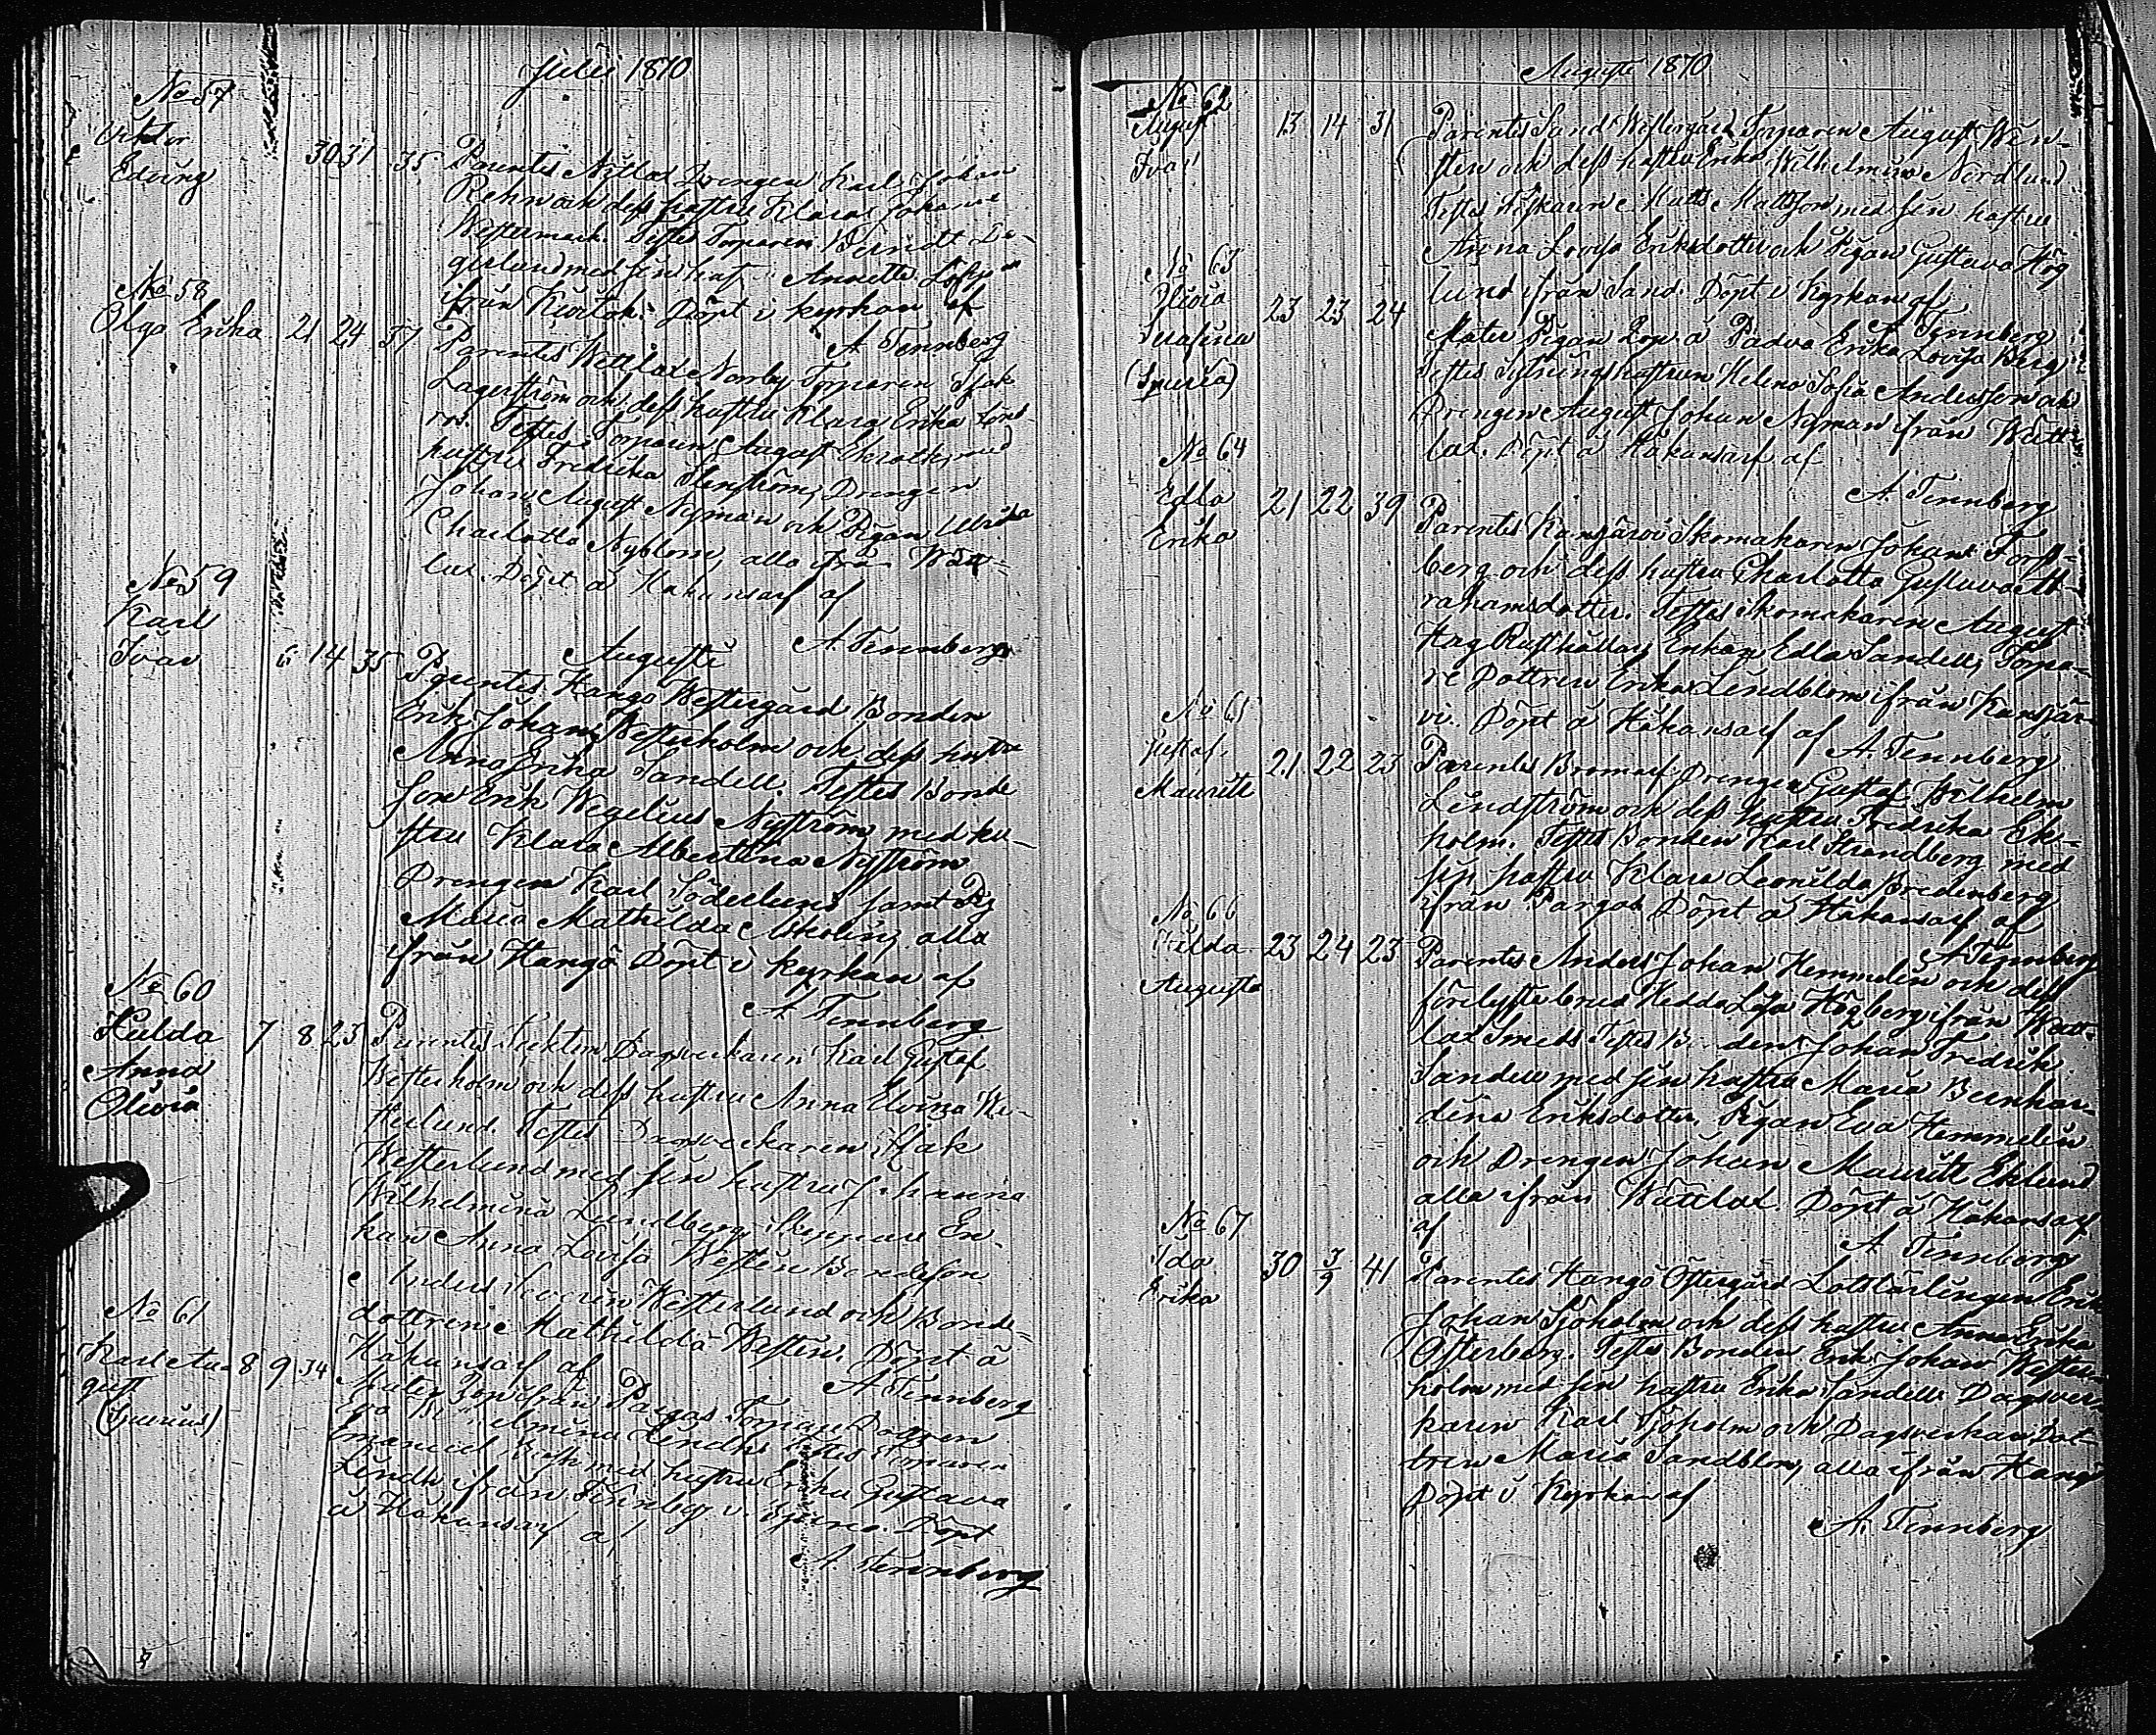 Julii 1870
No 57
Viktor
Edving 30 31 35 Parentes Drengen Karl Johan
Rehn och dess hustru Klara Johanna
Westermark. Testes Torparen Berndt Da-
gerlund med sin hust. Annette
ifrån Döpt i kyrkan af
A Tennberg
No 58
Olga Erika 21 24 37 Parentes Wättlax Norrby Torparen Isak
Lagerström och dess hustru Klara Erika
Testes Torparen August med
hustru Fredrika Drengen
Johan August Nyman och Pigan Ulrika
Charlotta Nyblom, alla ifrån Wätt-
lax. Döpt å Håkansarf af
A. Tennberg
Augusti
No 59
Karl
Ivar 14 35 Parentes Hangö Westergård Bonden
Erik Johan Westerholm och dess hustru
Anna Erika Sandell. Testes Bonde
son Erik Wegelius Nyström med hu-
stru Klara Albertina Nyström
Drengen Karl Söderlund samt Pig
Maria Mathilda Askolin, alla
ifrån Hangö Döpt i kyrkan af
A Tennberg
No 60
Hulda 7 8 23 Parentes Dagsverkaren Karl Gustaf
Anna Westerholm och dess hustru Anna
Olivia Testes Dagsverkaren Isak
Westerlund med sin hustru Johanna
Wilhelmina Lundberg, En-
kan Anna Lovisa Westén Bondeson
Anders Westerlund och Bonde-
dottren Mathilda Westén. Döpt å
Håkansarf af
A Tennberg
No 61
Karl Au- 8 9 34 Mater ifrån Pargas
gust Eva Testes Torparen
(Spurius) Emanuel med hustru Erika Gustava
Lindh ifrån Döpt
å Håkansarf af
A. Tennberg
Augusti 1870
No 62
August 13 14 31 Parentes Sand Westergård Torparen August
Ivar och dess hustru Erika Wilhelmina Nordlund
Testes Matts Mattsson med sin hustru
Anna Lovisa Eriksdotter och Pigan Gustava Hög
lund ifrån Sand. Döpt i Kyrkan af
A Tennberg
No 63
Olivia 23 23 24 Mater Pigan å Padva Erika Lovisa Berg
Serafina Testes hustrun Helena Sofia Andersson och
(Spuria) Drengen August Johan Nyman ifrån Wätt-
lax. Döpt å Håkansarf af
A. Tennberg
No 64
Edla 21 22 39 Parentes Kansjärvi Skomakaren Johan Fors-
Erika berg och dess hustru Charlotta Gustava Ab-
rahamsdotter. Testes Skomakaren August
Hag Enkan Edla Sandell, Torpa-
re Dottren Erika Lindblom ifrån Kansjär-
vi. Döpt å Håkansarf af A. Tennberg
No 65
Gustaf 21 22 23 Parentes Bromarf Drengen Gustaf Wilhelm
Mauritz Lindström och dess hustru Fredrika Ek-
holm. Testes Bonden Karl Strandberg med
sin hustru Klara Leonilda Bredenberg
ifrån Pargas Döpt å Håkansarf af
A Tennberg
No 66
Hilda 23 24 23 Parentes Anders Johan Hemmelin och dess
Augusta Hedda Lisa Högberg ifrån Wätt-
lax Smeds Testes Bonden Johan Fredrik
Sandell med sin hustru Maria Bernhar-
dina Eriksdotter, Pigan Eva Hemmelin
och Drengen Johan Mauritz Eklund
alla ifrån Wättlax. Döpt å Håkansarf
af
A Tennberg
No 67
Ida 30 3/9 41 Parentes Hangö Östergård Lotslärlingen Erik
Erika Johan Sjöholm och dess hustru Anna Erika
Österberg. Testes Bonden Erik Johan Wester-
holm med sin hustru Erika Sandell Dagsver-
karen Karl Sjöholm och Dagsverkare Dot-
tren Maria Sandblom, alla ifrån Hangö
Döpt i Kyrkan af
A. Tennberg